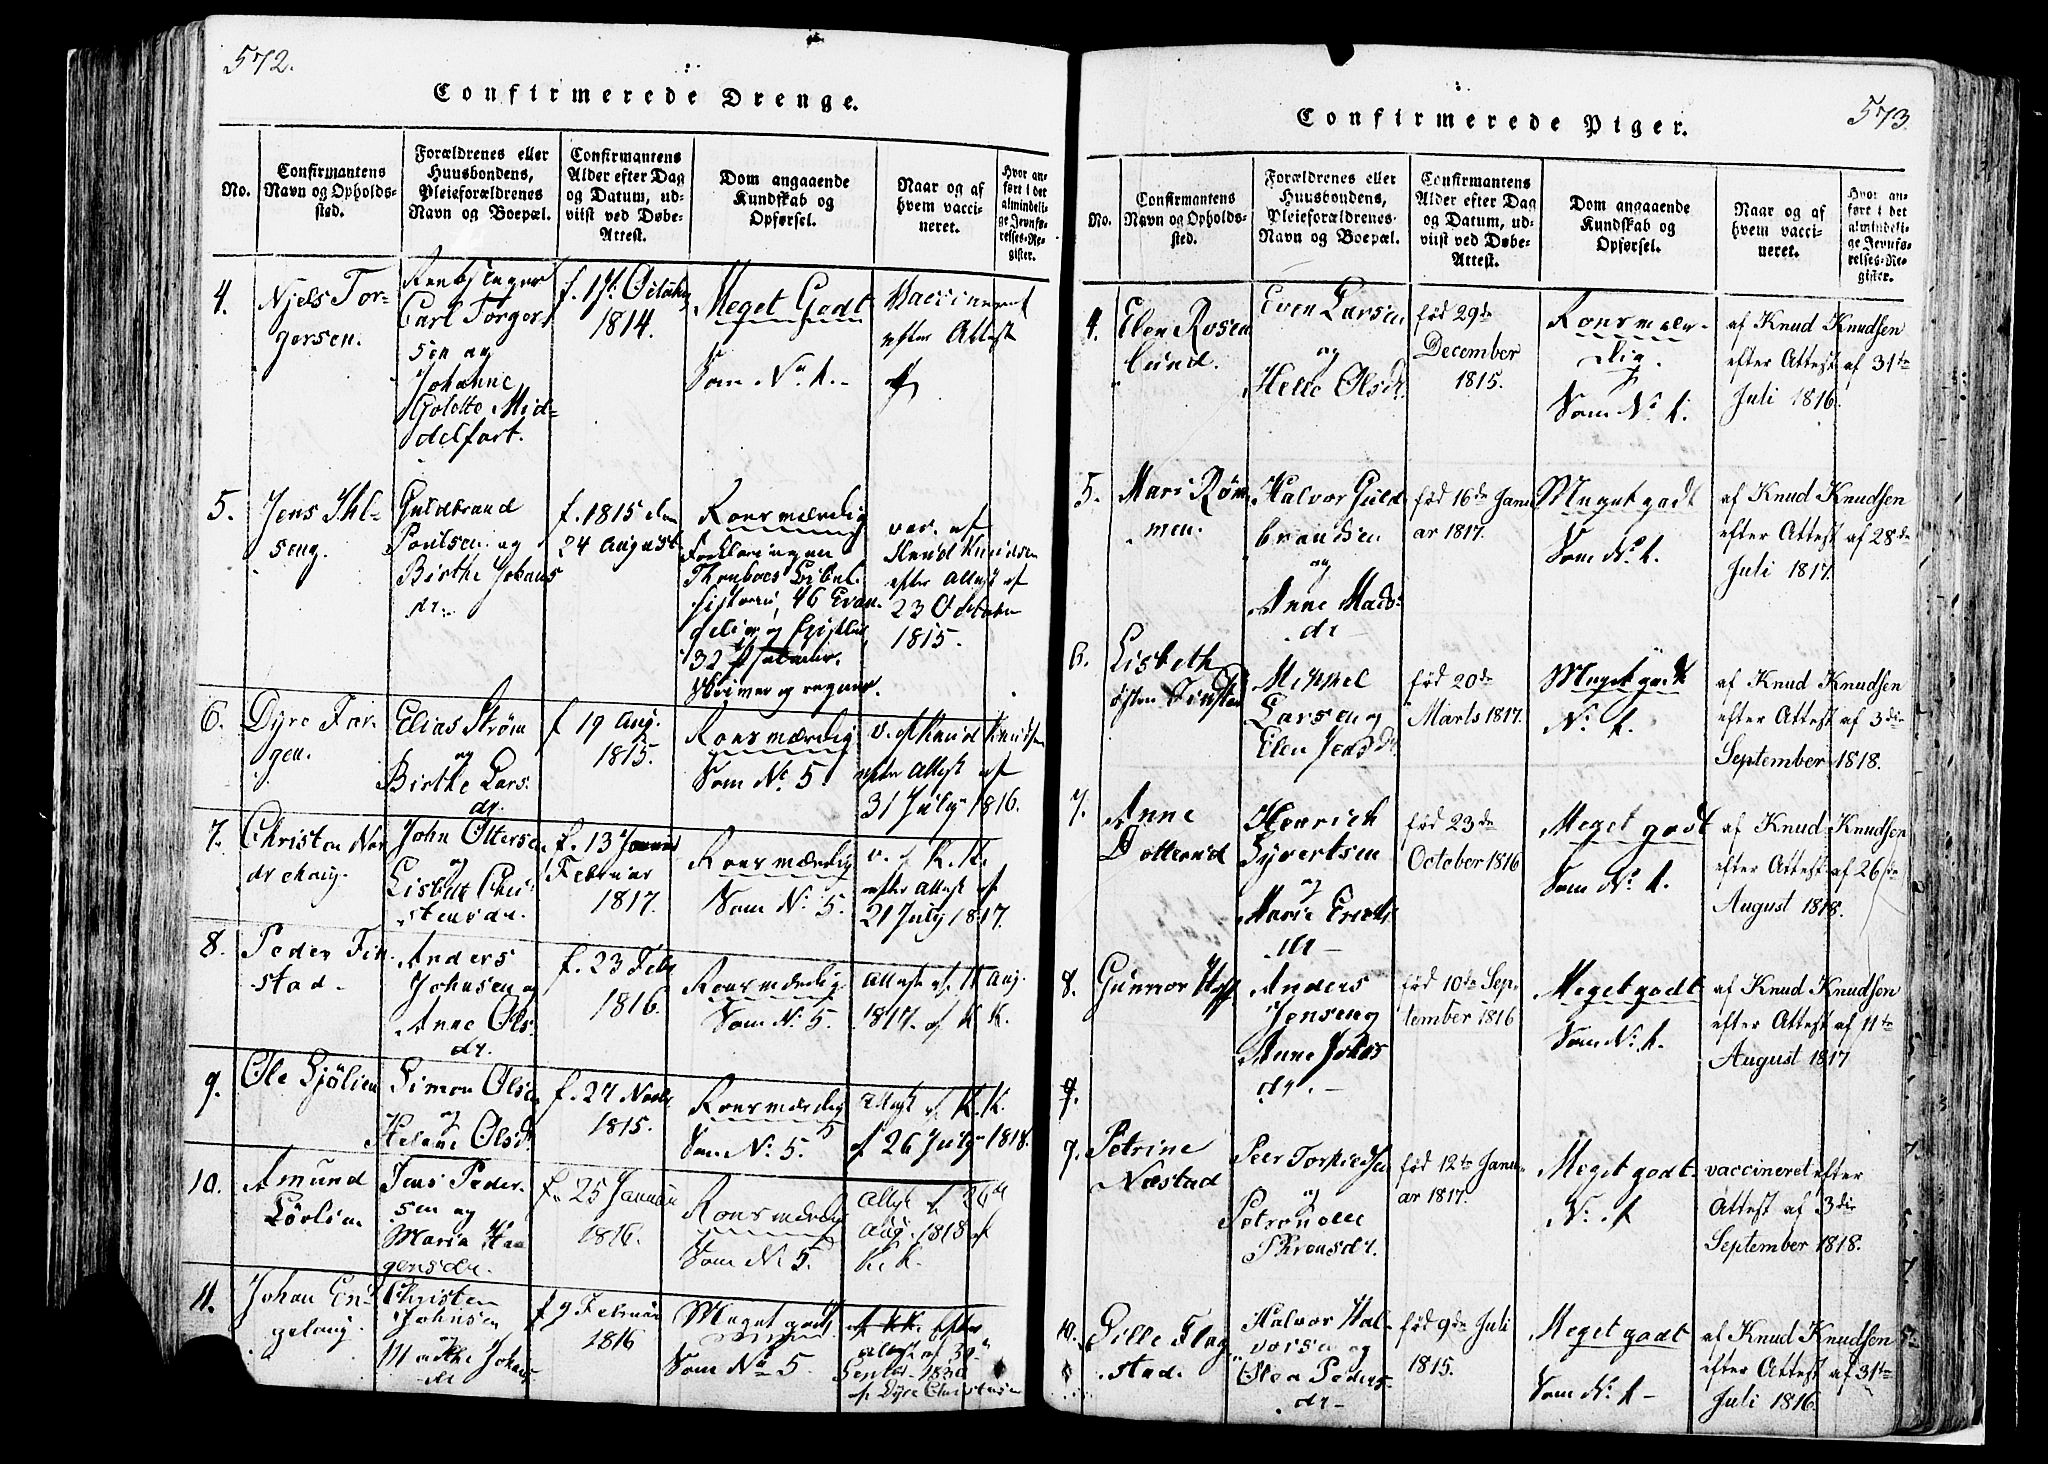 572.
Confirmerede Drenge.
No.
Confirmantens
Navn og Opholds-
sted.
Forældrenes eller
Huusbondens,
Pleieforældrenes
Navn og Boepæl.
Confirmantens
Alder efter Dag
og Datum, ud-
viist ved Døbe-
Attest.
Dom angaaende
Kundskab og
Opførsel.
Naar og af
hvem vacci-
neret.
Hvor an-
ført i det
almindeli-
ge Jevnfø-
relses-Re-
gister.
4.
Njels Tor-
gersen.
Carl Torger-
sen og
Johanne
Mid-
delfart.
f. 17. October
1814.
Meget Godt
Som No. 1.
Vaccineret
efter Attest
af
5.
Jens Ihl-
seng.
Guldbrand
Poulsen og
Birthe Johans
dr.
f. 1815 den
24 August
Roesværdig
Forklaringen
46 Evan-
gelier og Epistler
32 Psalmer.
Skriver og regner.
vac. af
Knud Knudsen
efter Attest af
23 October
1815.
6.
Dyre Far-
gen.
Elias Strøm
og
Birthe Lars
dr.
f 19 Aug.
1815.
Roesværdig
Som No. 5.
v. af Knud Knudsen
efter Attest af
31 July 1816.
7.
Christen Nor
drehaug.
John Ottersen
og
Lisbet Chri
stensdr.
f. 13 Januar
Februar
1817.
Roesværdig
Som No. 5.
v. af K. K.
efter Attest af
21 July 1817.
8.
Peder Fin
stad.
Anders
Johnsen og
Anne Ols
dr.
f. 23 Febr
1816.
Roesværdig
Som No. 5.
Attest af 11 Aug.
1817. af K K.
9.
Ole Sjölien
Simon Olsen
og
Helene Olsdr
f. 27 Novbr
1815.
Roesværdig
Som No. 5.
Attest af K. K.
af 26 July 1818.
10.
Amund
Lörlien
Jens Peder-
sen og
Maria Haa
gensdr.
f. 25 Januar
1816.
Roesværdig
Som No 5.
Attest af 26
Aug. 1818 af
K. K.
11.
Johan En
gelaug.
Christen
Johnsen
og
Marthe Johans
dr
f 9. Februar
1816
Meget godt
Som No 5.
af KK. efter
Attest af 30
1830
af Dyre Christensen
573.
Confirmerede Piger.
No.
Confirmantens
Navn og Opholds-
sted.
Forældrenes eller
Huusbondens,
Pleieforældrenes
Navn og Boepæl.
Confirmantens
Alder efter Dag
og Datum, ud-
viist ved Døbe-
Attest.
Dom angaaende
Kundskab og
Opførsel.
Naar og af
hvem vacci-
neret.
Hvor an-
ført i det
almindeli-
ge Jevnfø-
relses-Re-
gister.
4.
Elen Rosen
lund.
Even Larsen
og
Helle Olsdr.
fød 29de
December
1815.
Roesvær-
dig.
Som No. 1.
af Knud Knudsen
efter Attest af 31te
Juli 1816.
5.
Mari Røm
men.
Halvor Guld
brandsen
og
Anne Mads
dr
fød 16de Janu
ar 1817.
Meget godt
Som No. 1.
af Knud Knudsen
efter Attest af 28de
Juli 1817.
6.
Lisbeth
østen Finstad
Mikkel
Larsen og
Elen Jensdr
fød 20de
Marts 1817.
Meget godt
No. 1.
af Knud Knudsen
efter Attest af 3die
September 1818.
7.
Anne
Dotterud
Henrich
Syvertsen
og
Marie Ericks
dr
fød 23de
October 1816
Meget godt
Som No. 1.
af Knud Knudsen
efter Attest af 26de
August 1818.
8.
Gunnor
Anders
Jensen og
Anne Johns
dr.
fød 10de Sep-
tember 1816
Meget godt
Som No. 1.
af Knud Knudsen
efter Attest af 11te
August 1817
9.
9.
Petrine
Næstad
Peer Torkildsen
og
Petronelle
Thronsdr.
fød 12te Janu
ar 1817.
Meget godt
No. 1
vaccineret efter
Attest af 3die
September 1818.
10.
Pille Flag
stad.
Halvor Hal-
vorsen og
Olea Peders
dr
fød 9de Juli
1815.
Meget godt
Som No. 1
af Knud Knudsen
efter Attest af 31te
Juli 1816.